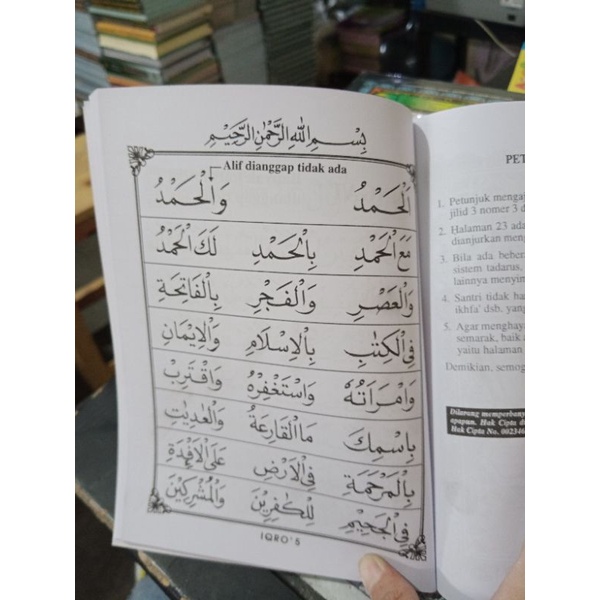 بِسْمِ اللهِ الرَّحْمٰنِ الرَّحِيْمِ
Alif dianggap tidak ada
اَلْحَمْدُ وَالْحَمْدُ
مَعَ الْحَمْدِ بِالْحَمْدِ لَكَ الْحَمْدُ
وَالْعَصْرِ وَالْفَجْرِ بِالْفَاتِحَةِ
فِي الْكِتٰبِ بِالْاِسْلَامِ وَالْاِيْمَانِ
وَامْرَاَتُهُ وَاسْتَغْفِرْهُ وَاقْتَرِبْ
بِاسْمِكَ مَا الْقَارِعَةُ وَالْعٰدِيٰتِ
بِالْمَرْحَمَةِ فِي الْاَرْضِ عَلَى الْاَفْـِٕدَةِ
فِي الْجَحِيْمِ لِلْكٰفِرِيْنَ وَالْمُشْرِكِيْنَ
IQRO' 5
PET
1. Petunjuk mengaj
jilid 3 nomer 3 d
2. Halaman 23 ada
dianjurkan meng
3. Bila ada bebera
sistem tadarus,
lainnya menyin
4. Santri tidak ha
ikhfa' dsb. yang
5. Agar menghay
semarak, baik a
yaitu halaman
Demikian, semog
Dilarang memperbany
apapun. Hak Cipta di
Hak Cipta No. 002346